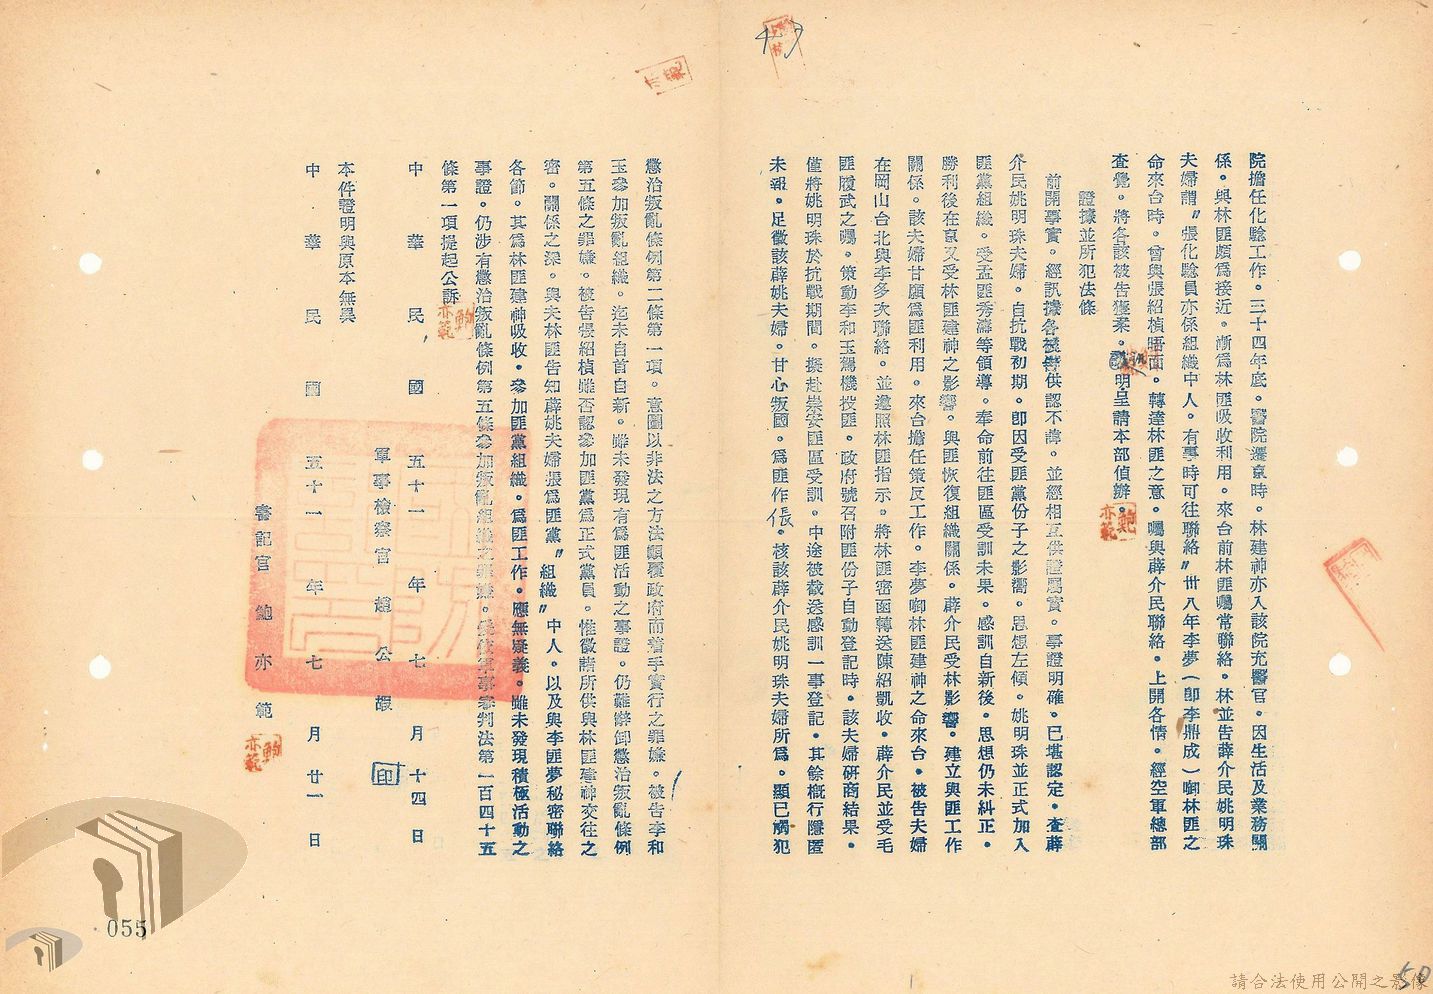 院擔任化驗工作。三十四年底。醫院遷京時。林建神亦入該院充醫官。因生活及業務關
係。與林匪頗為接近。漸為林匪吸收利用。來台前林匪囑常聯絡。林並告薛介民姚明珠
夫婦謂〝張化驗員亦係組織中人。有事時可往聯絡〞卅八年李夢(即李鼎成)啣林匪之
命來台時。曾與張紹楨晤面。轉達林匪之意。囑與薛介民聯絡。上開各情。經空軍總部
查覺。將各該被告獲案。明呈請本部偵辦。
證據並所犯法條
前開事實。經訊據各被告供認不諱。並經相互供證屬實。事證明確。已堪認定。查薛
介民姚明珠夫婦。自抗戰初期。即因受匪黨份子之影響。思想左傾。姚明珠並正式加入
匪黨組織。受孟匪秀濤等領導。奉命前往匪區受訓未果。感訓自新後。思想仍未糾正。
勝利後在京又受林匪建神之影響。與匪恢復組織關係。薛介民受林影響。建立與匪工作
關係。該夫婦甘願為匪利用。來台擔任策反工作。李夢啣林匪建神之命來台。被告夫婦
在岡山台北與李多次聯絡。並遵照林匪指示。將林匪密函轉送陳紹凱收。薛介民並受毛
匪履武之囑。策動李和玉駕機投匪。政府號召附匪份子自動登記時。該夫婦研商結果。
僅將姚明珠於抗戰期間。擬赴崇安匪區受訓。中途被截送感訓一事登記。其餘概行隱匿
未報。足徵該薛姚夫婦。甘心叛國。為匪作倀。核該薛介民姚明珠夫婦所為。顯已觸犯
懲治叛亂條例第二條第一項。意圖以非法之方法顛覆政府而着手實行之罪嫌。被告李和
玉參加叛亂組織。迄未自首自新。雖未發現有為匪活動之事證。仍難辭卸懲治叛亂條例
第五條之罪嫌。被告張紹楨雖否認參加匪黨為正式黨員。惟徵諸所供與林匪建神交往之
密。關係之深。與夫林匪告知薛姚夫婦張為匪黨〝組織〞中人。以及與李匪夢秘密聯絡
各節。其為林匪建神吸收。參加匪黨組織。為匪工作。應無疑義。雖未發現積極活動之
事證。仍涉有懲治叛亂條例第五條參加叛亂組織之罪嫌。爰依軍事審判法第一百四十五
條第一項提起公訴
中華民國五十一年七月十四日
軍事檢察官 趙公嘏 印
本件證明與原本無異
中華民國五十一年七月廿一日
書記官 鮑亦範
鮑亦範
055
50
請合法使用公開之影像